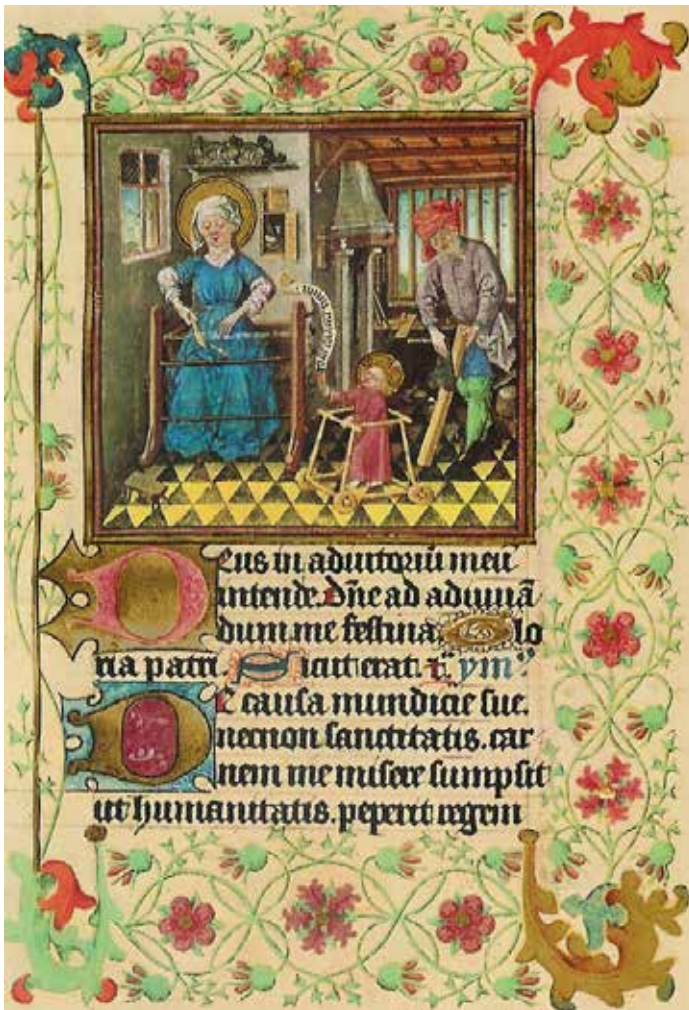 Deus in adiutoriū meū
intende. dn̄e ad adiuuā
dum me festina. Glo
ria patri. Sicut erat. ym
De causa mundicie sue.
necnon sanctitatis. car
nem me misere sumpsit
ut humanitatis. peperit regem